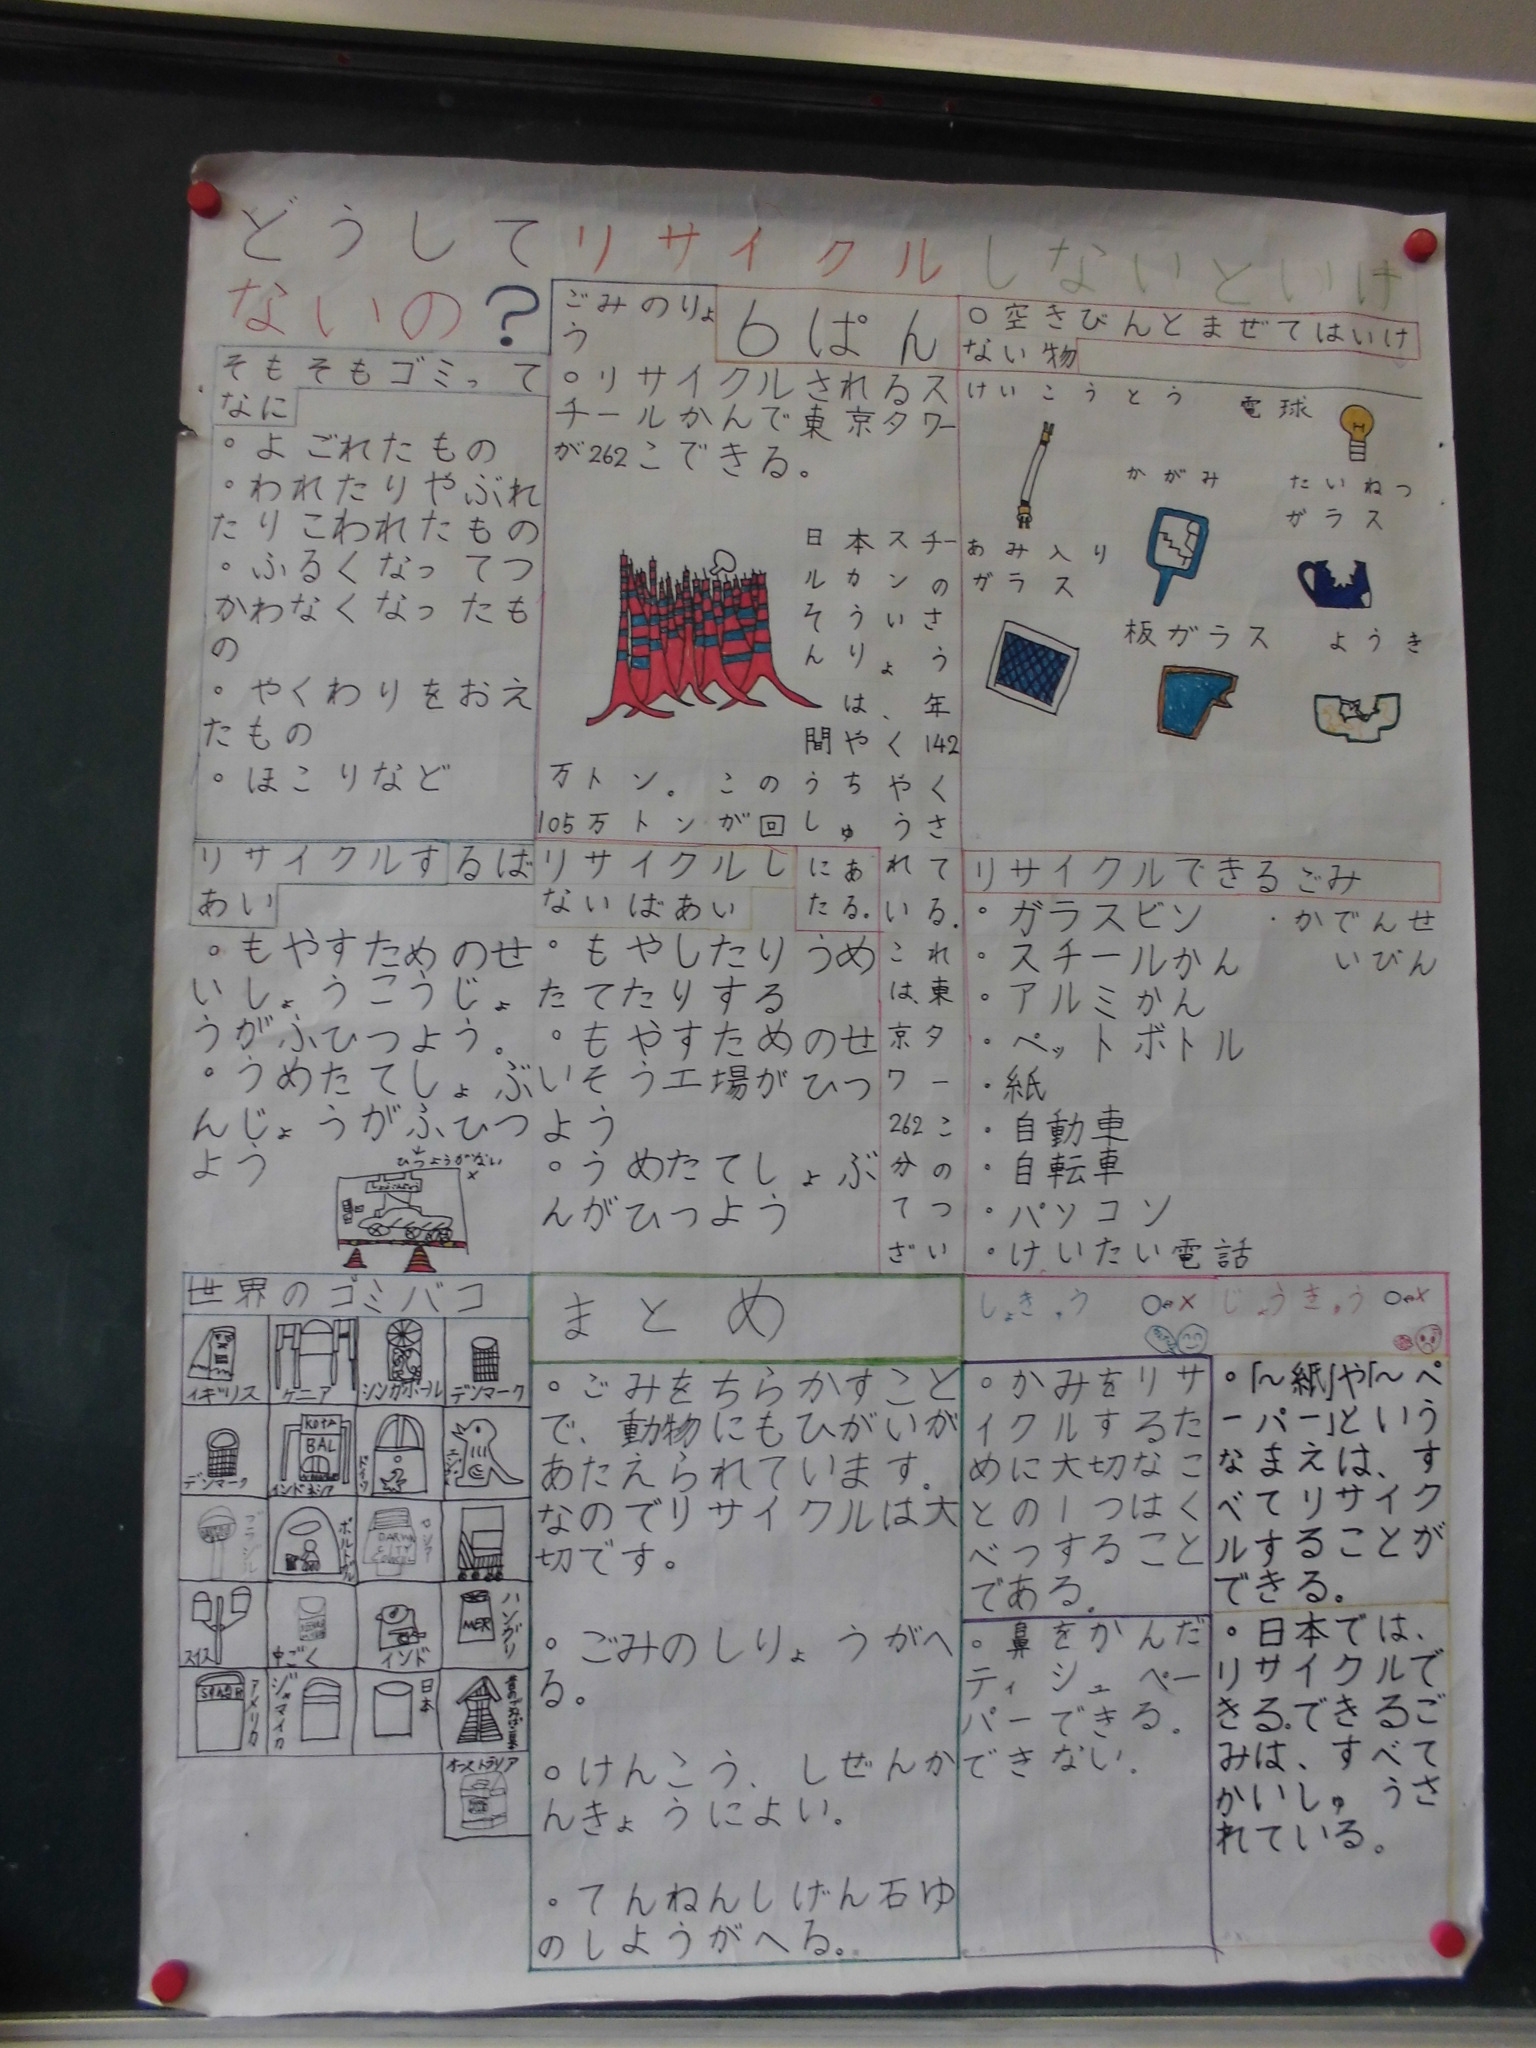 どうしてリサイクルしないといけ
ないの?
6ぱん
そもそもゴミって
なに
°よごれたもの
°われたりやぶれ
たりこわれたもの
°ふるくなってつ
かわなくなったも
の
°やくわりをおえ
たもの
°ほこりなど
ごみのりょ
う
°リサイクルされるス
チールかんで東京タワー
が262こできる。
日本スチー
ルカンの
そういさ
んりょう
は、年
間やく142
万トン。このうちやく
105万トンが回しゅうさ
れて
いる。
これ
は、東
京タ
ワー
262こ
分の
てつ
ざい
にあ
たる。
○空きびんとまぜてはいけ
ない物
けいこうとう
電球
かがみ
たいねつ
ガラス
あみ入り
ガラス
板ガラス
ようき
リサイクルするば
あい
°もやすためのせ
いしょうこうじょ
うがふひつよう。
°うめたてしょぶ
んじょうがふひつ
よう
ひつようがない
リサイクルし
ないばあい
°もやしたりうめ
たてたりする
°もやすためのせ
いそう工場がひつ
よう
°うめたてしょぶ
んがひつよう
リサイクルできるごみ
°ガラスビン
・スチールかん
・アルミかん
・ペットボトル
・紙
・自動車
・自転車
・パソコン
・けいたい電話
・かでんせ
いびん
世界のゴミバコ
イギリス
ケニア
シンガポール
デンマーク
デンマーク
KOTA
BAL
インドネシア
ブラジル
ポルトガル
スイス
中ごく
インド
MER
ハンガリ
アメリカ
ジャマイカ
日本
オーストラリア
まとめ
°ごみをちらかすこと
で、動物にもひがいが
あたえられています。
なのでリサイクルは大
切です。
°ごみのしりょうがへ
る。
°けんこう、しぜんか
んきょうによい。
°てんねんしげん石ゆ
のしようがへる。
しょきゅう ○か×
°かみをリサ
イクルするた
めに大切なこ
との1つはく
べつすること
である。
°鼻をかんだ
ティシュペー
パーできる。
できない。
じょうきゅう ○か×
°「〜紙」や「〜ペ
ーパー」という
なまえは、す
べてリサイク
ルすることが
できる。
°日本では、
リサイクルで
きる。できるご
みは、すべて
かいしゅうさ
れている。